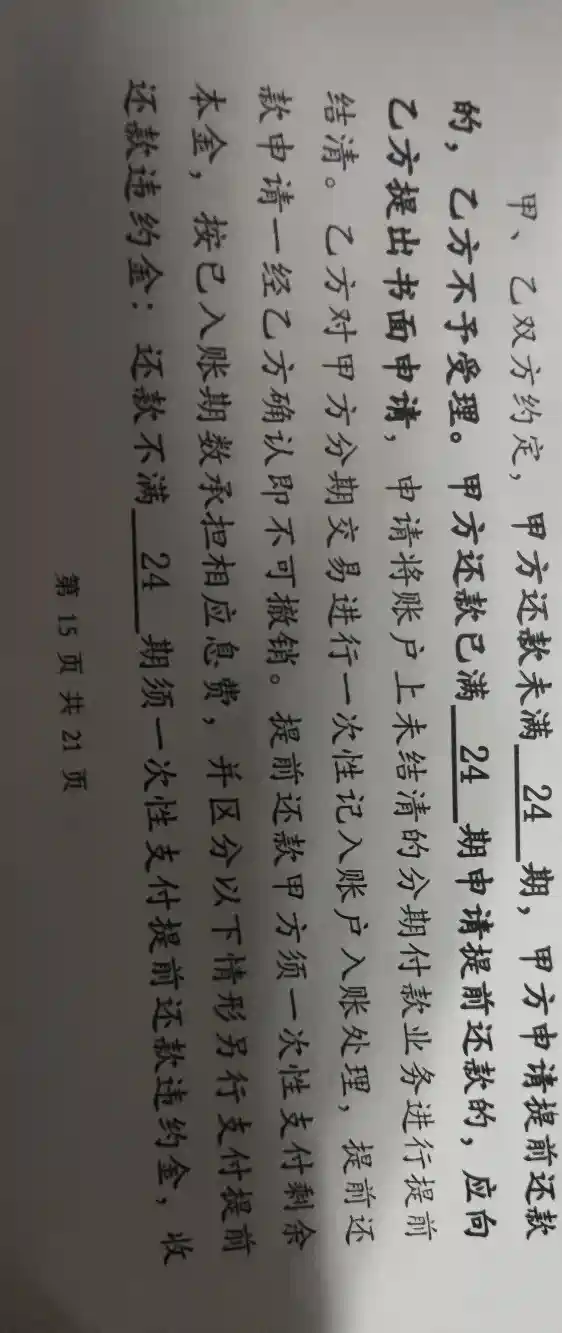 甲、乙双方约定，甲方还款未满 24 期，甲方申请提前还款
的，乙方不予受理。甲方还款已满 24 期申请提前还款的，应向
乙方提出书面申请，申请将账户上未结清的分期付款业务进行提前
结清。乙方对甲方分期交易进行一次性记入账户入账处理，提前还
款申请一经乙方确认即不可撤销。提前还款甲方须一次性支付剩余
本金，按已入账期数承担相应息费，并区分以下情形另行支付提前
还款违约金：还款不满 24 期须一次性支付提前还款违约金，收
第 15 页 共 21 页